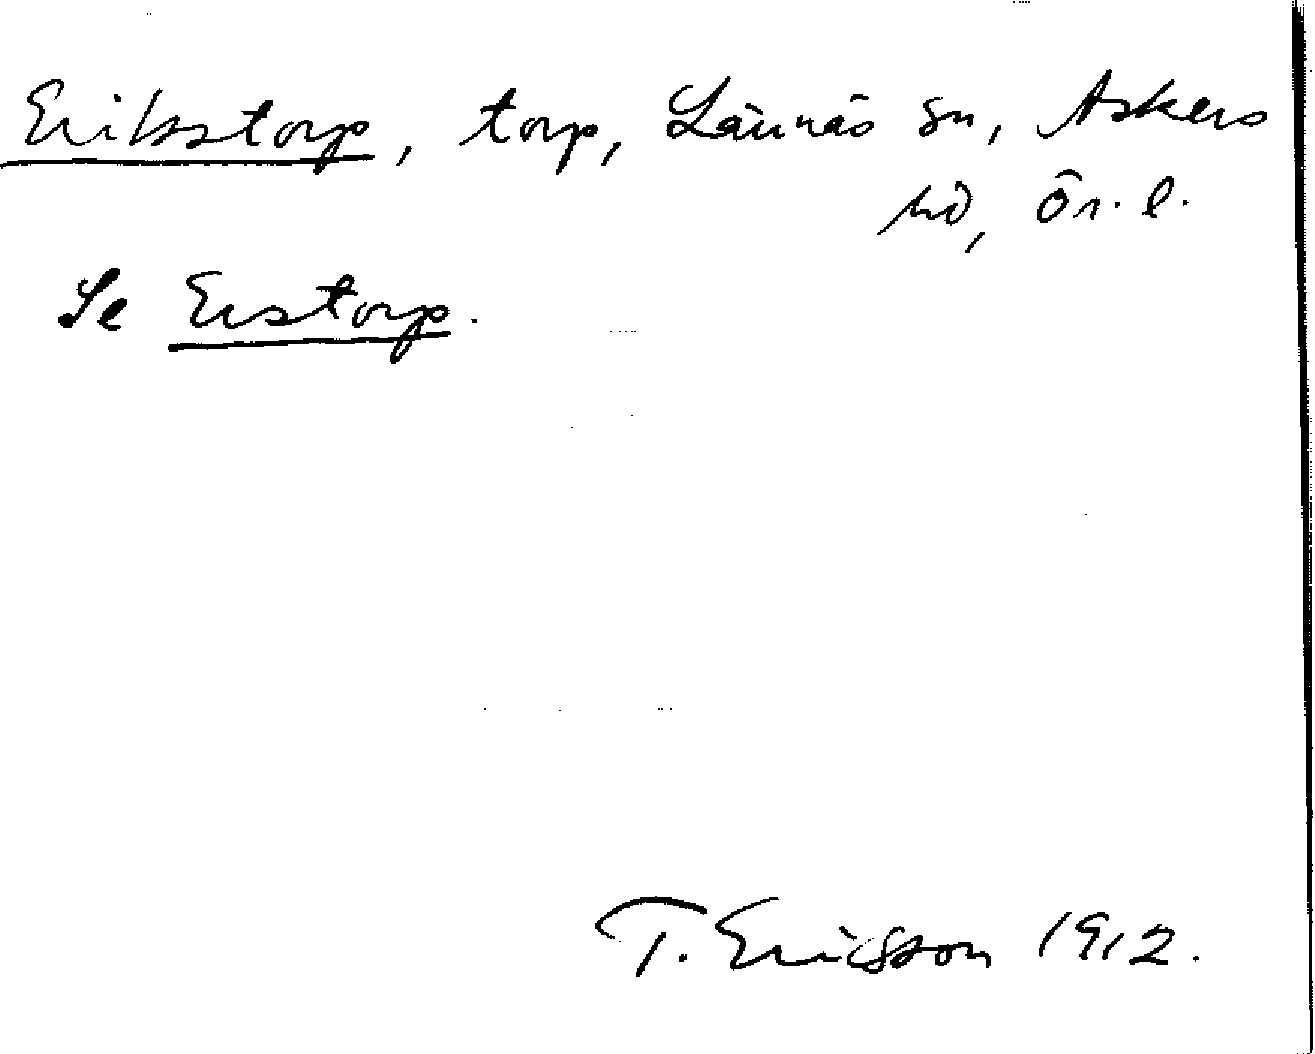 Eriksstorp, torp, Lännäs sn, Askers
hd, Ör. l.
Se Erstorp.
T. Ericsson 1912.